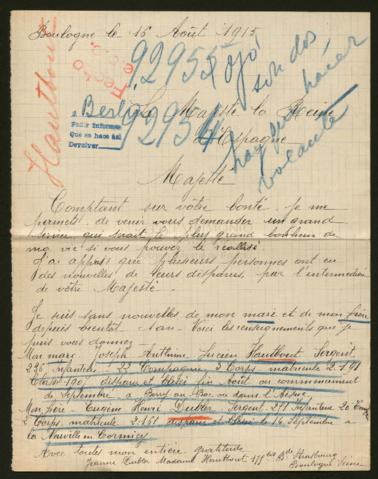 Boulogne le 16 Août 1915
Hautbout
92955
92954
ojo!
son dos
hay que hacer
volante
a Berlin
Pedir informes
Que se hace así
Devolver
A Sa Majesté la Reine
d'Espagne
Majesté
Comptant sur votre bonté je me
permets de venir vous demander un grand
service qui serait le plus grand bonheur de
ma vie si vous pouvez le réaliser
J'ai appris que plusieurs personnes ont eu
des nouvelles de leurs disparus, par l'intermédiaire
de votre Majesté.
Je suis sans nouvelles de mon mari et de mon frère
depuis bientôt 1 an. Voici les renseignements que je
puis vous donner
Mon mari Joseph Anthime Lucien Hautbout Sergent
Infanterie 22 Compagnie 3 Corps matricule
Classe 1907 disparu et blessé fin août ou commencement
de Septembre à ou dans l'Aisne
Mon frère Eugène Henri Dubler Sergent Infanterie 20
2 Corps matricule disparu et blessé le 14 Septembre à
la Neuville en Cormicy
Avec toute mon entière gratitude
Jeanne Dubler Madame Hautbout 177 Bd Strasbourg
Boulogne Seine